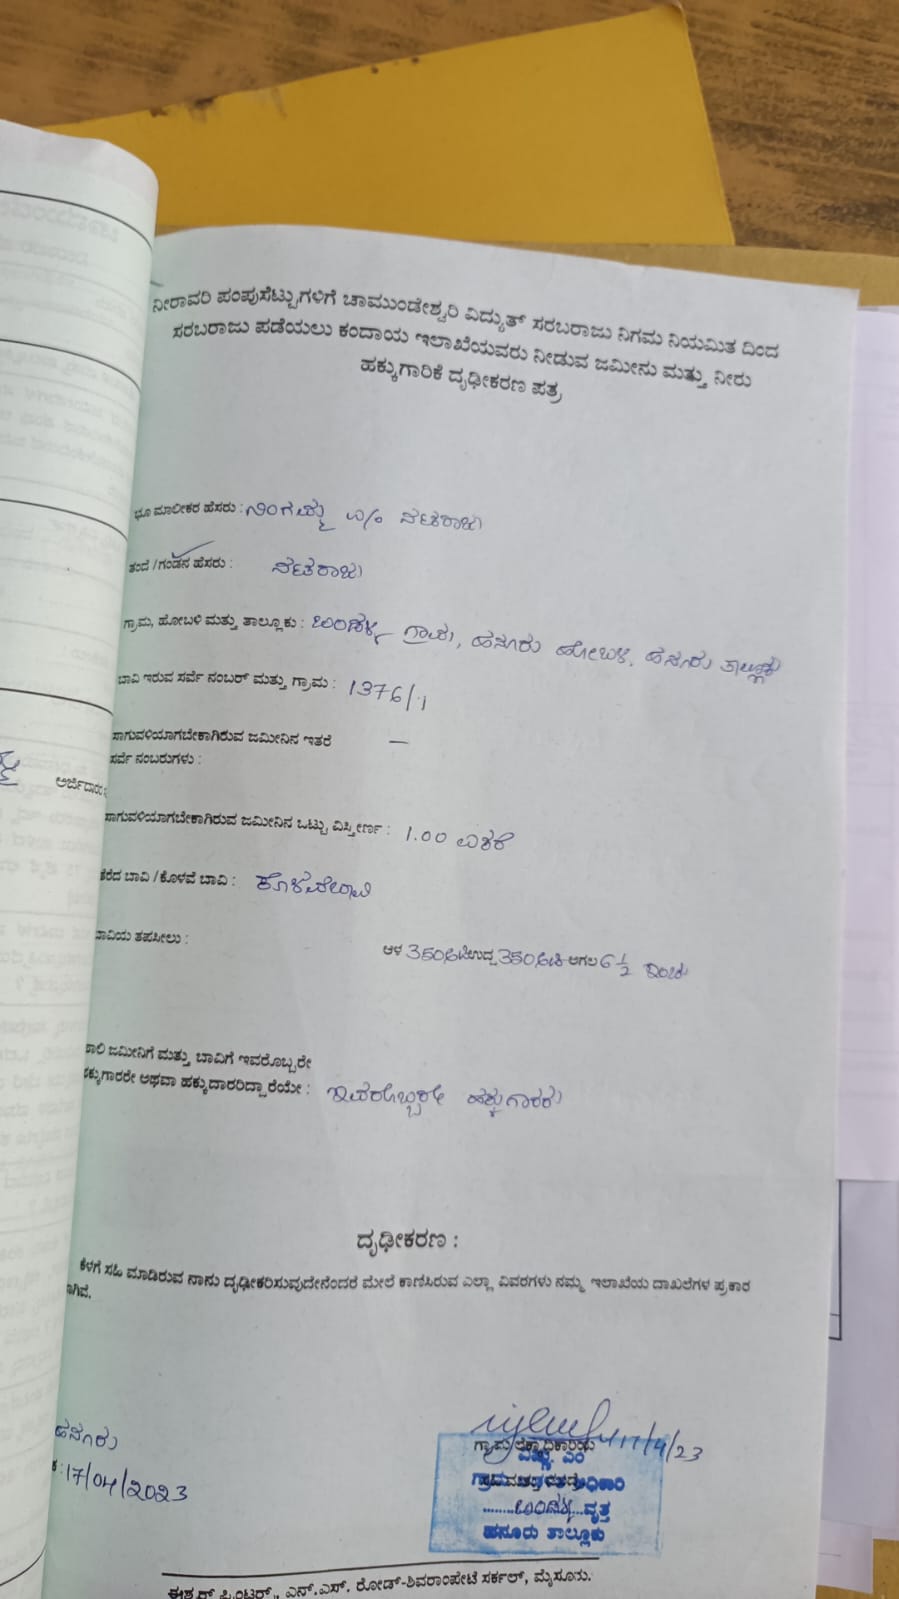 ನೀರಾವರಿ ಪಂಪುಸೆಟ್ಟುಗಳಿಗೆ ಚಾಮುಂಡೇಶ್ವರಿ ವಿದ್ಯುತ್ ಸರಬರಾಜು ನಿಗಮ ನಿಯಮಿತ ದಿಂದ
ಸರಬರಾಜು ಪಡೆಯಲು ಕಂದಾಯ ಇಲಾಖೆಯವರು ನೀಡುವ ಜಮೀನು ಮತ್ತು ನೀರು
ಹಕ್ಕುಗಾರಿಕೆ ದೃಢೀಕರಣ ಪತ್ರ
ಭೂ ಮಾಲೀಕರ ಹೆಸರು : ನಿಂಗಮ್ಮ w/o ನಟರಾಜು
ತಂದೆ / ಗಂಡನ ಹೆಸರು : ನಟರಾಜು
ಗ್ರಾಮ, ಹೋಬಳಿ ಮತ್ತು ತಾಲ್ಲೂಕು : ಬಂಡಳ್ಳಿ ಗ್ರಾಮ, ಹನೂರು ಹೋಬಳಿ, ಹನೂರು ತಾಲ್ಲೂಕು
ಬಾವಿ ಇರುವ ಸರ್ವೆ ನಂಬರ್ ಮತ್ತು ಗ್ರಾಮ : 1376/1
ಸಾಗುವಳಿಯಾಗಬೇಕಾಗಿರುವ ಜಮೀನಿನ ಇತರೆ —
ಸರ್ವೆ ನಂಬರುಗಳು :
ಅರ್ಜಿದಾರರ
ಸಾಗುವಳಿಯಾಗಬೇಕಾಗಿರುವ ಜಮೀನಿನ ಒಟ್ಟು ವಿಸ್ತೀರ್ಣ : 1.00 ಎಕರೆ
ತೆರೆದ ಬಾವಿ / ಕೊಳವೆ ಬಾವಿ : ಕೊಳವೆಬಾವಿ
ಬಾವಿಯ ತಪಸೀಲು :
ಆಳ 350 ಅಡಿ ಉದ್ದ 350 ಅಡಿ ಅಗಲ 6 1/2 ಇಂಚು
ಖಾಲಿ ಜಮೀನಿಗೆ ಮತ್ತು ಬಾವಿಗೆ ಇವರೊಬ್ಬರೇ
ಹಕ್ಕುಗಾರರೇ ಅಥವಾ ಹಕ್ಕುದಾರರಿದ್ದಾರೆಯೇ : ಇವರೊಬ್ಬರೇ ಹಕ್ಕುಗಾರರು
ದೃಢೀಕರಣ :
ಕೆಳಗೆ ಸಹಿ ಮಾಡಿರುವ ನಾನು ದೃಢೀಕರಿಸುವುದೇನೆಂದರೆ ಮೇಲೆ ಕಾಣಿಸಿರುವ ಎಲ್ಲಾ ವಿವರಗಳು ನಮ್ಮ ಇಲಾಖೆಯ ದಾಖಲೆಗಳ ಪ್ರಕಾರ
ಾಗಿವೆ.
ಹನೂರು
17/04/2023
17/4/23
ಗ್ರಾಮ ಲೆಕ್ಕಾಧಿಕಾರಿಯ
ಬಂಡಳ್ಳಿ ವೃತ್ತ
ಹನೂರು ತಾಲ್ಲೂಕು
ಈಶ್ವರ್ ಪ್ರಿಂಟರ್ಸ್, ಎನ್.ಎಸ್. ರೋಡ್-ಶಿವರಾಂಪೇಟೆ ಸರ್ಕಲ್, ಮೈಸೂರು.